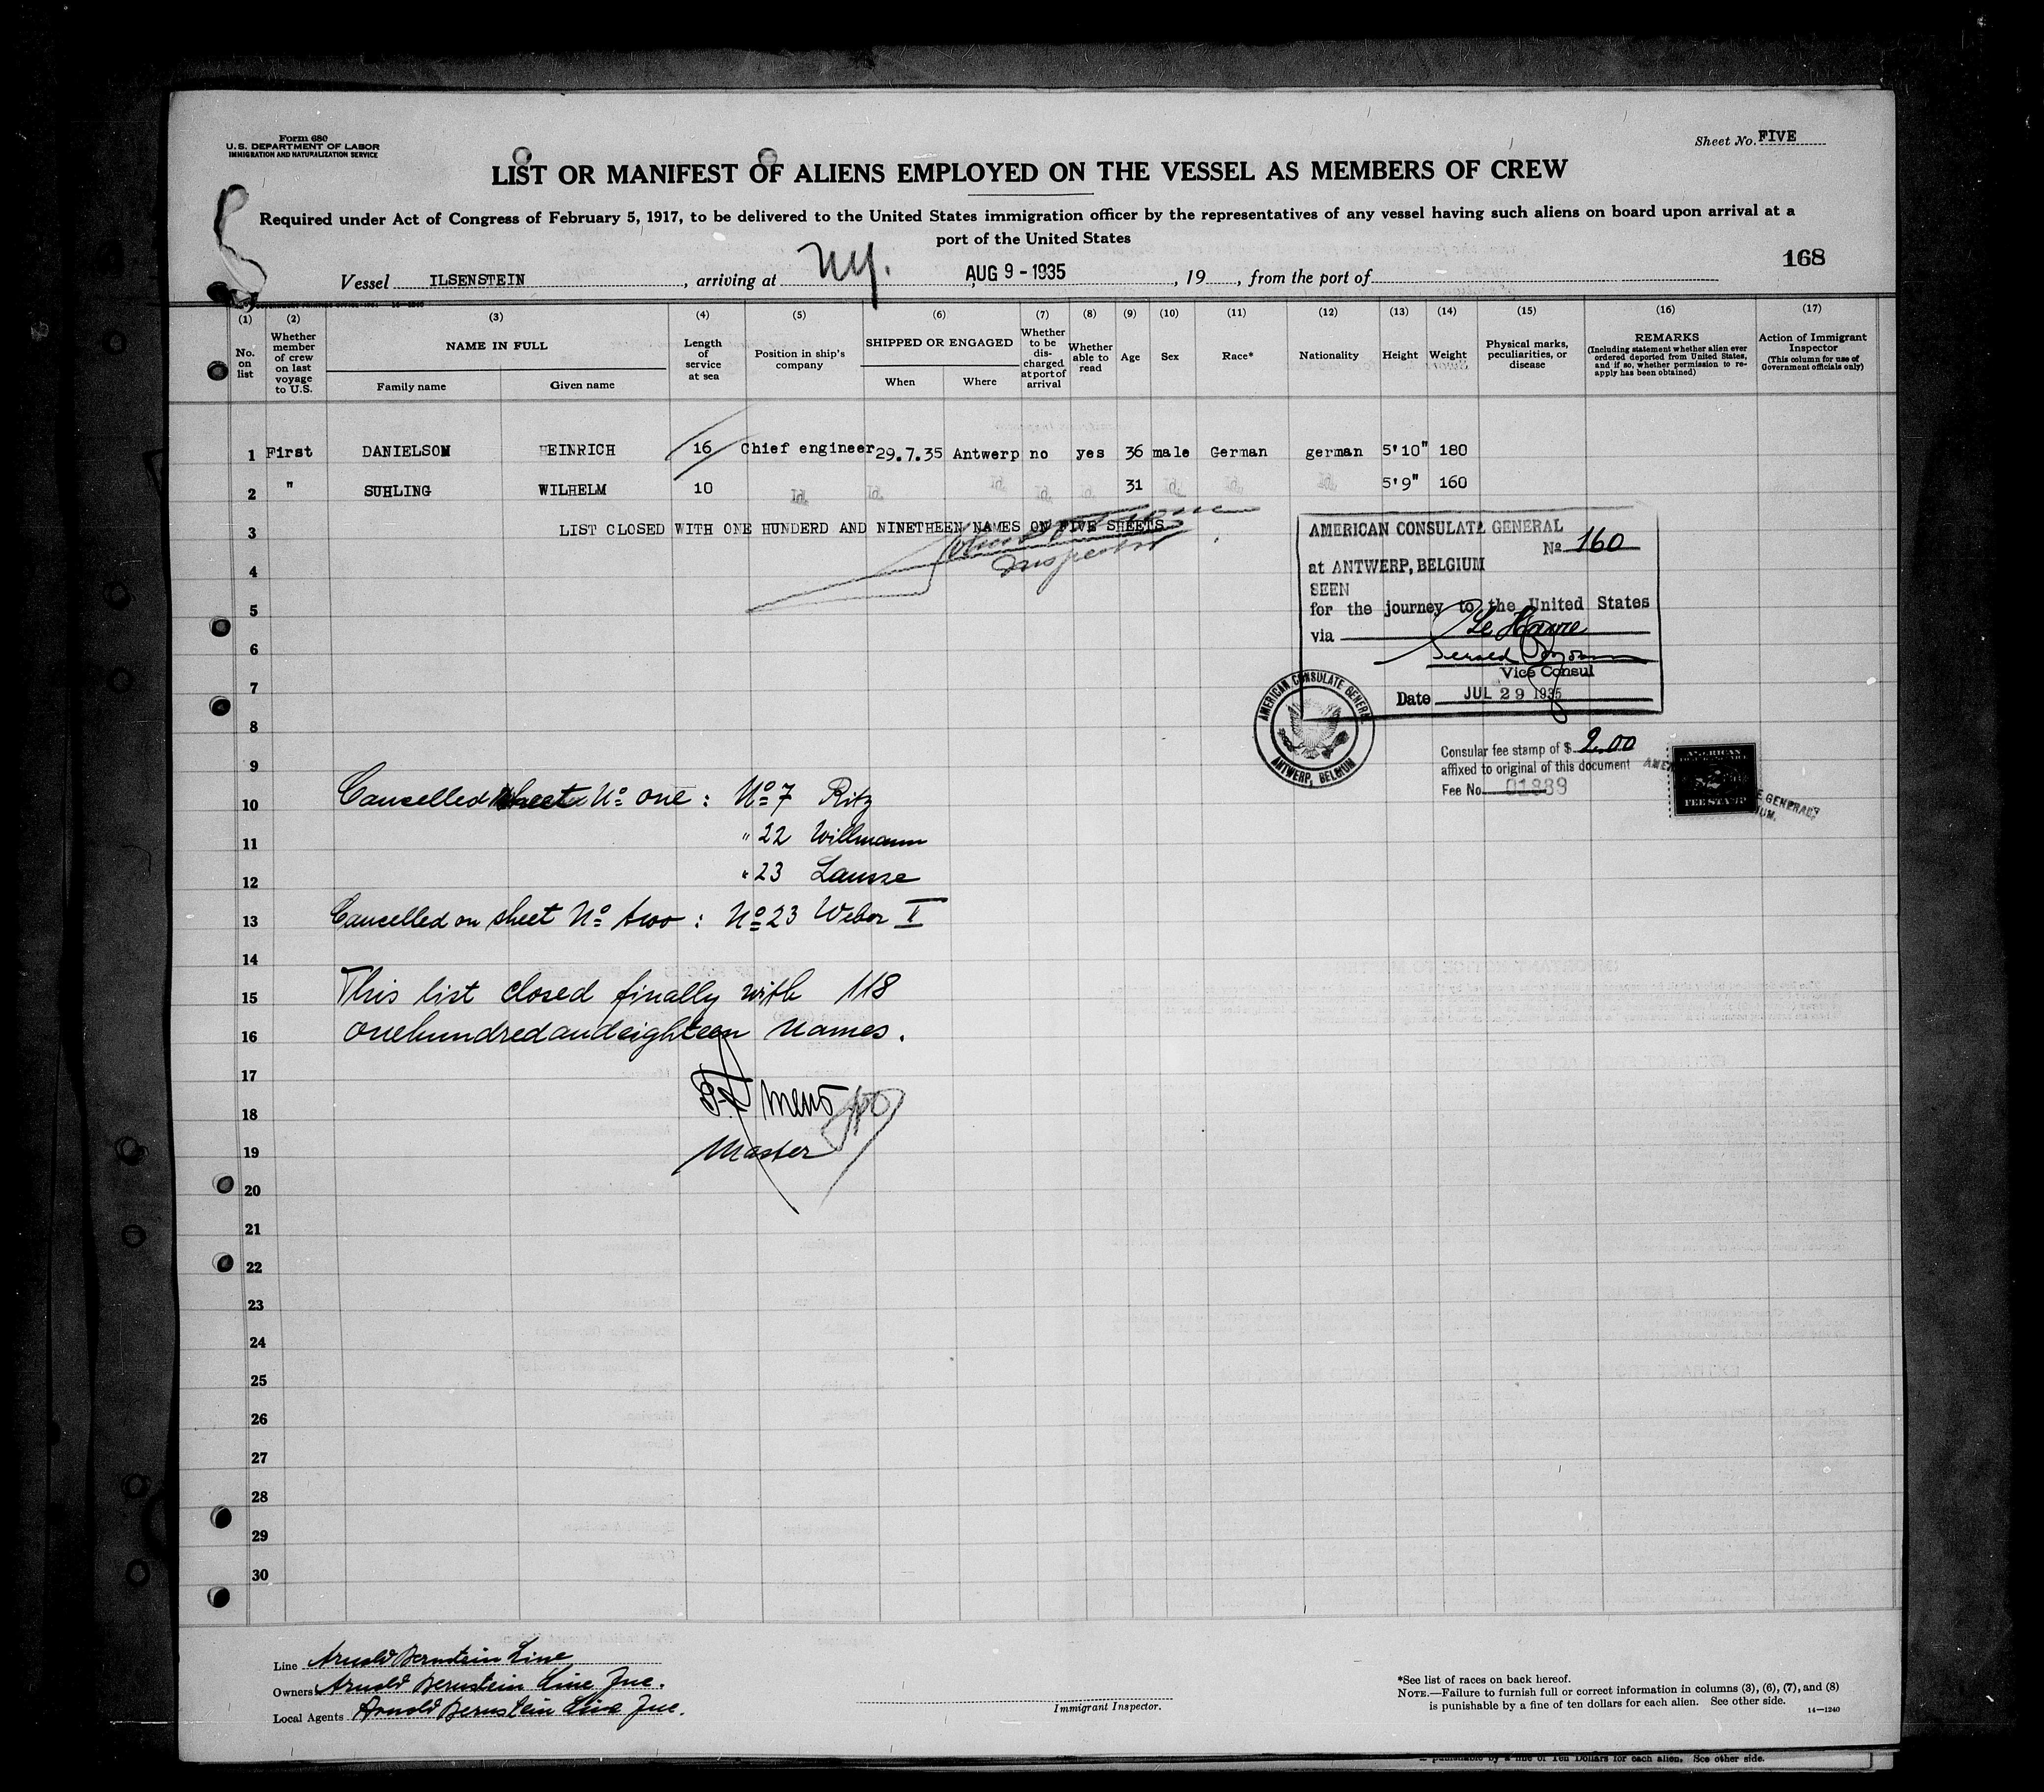 Form 680
U. S. DEPARTMENT OF LABOR
IMMIGRATION AND NATURALIZATION SERVICE
Sheet No. FIVE
LIST OR MANIFEST OF ALIENS EMPLOYED ON THE VESSEL AS MEMBERS OF CREW
Required under Act of Congress of February 5, 1917, to be delivered to the United States immigration officer by the representatives of any vessel having such aliens on board upon arrival at a
port of the United States
168
Vessel ILSENSTEIN, arriving at NY. AUG 9 - 1935, 19, from the port of
(1) (2) (3) (4) (5) (6) (7) (8) (9) (10) (11) (12) (13) (14) (15) (16) (17)
No. on list
Whether member of crew on last voyage to U.S.
NAME IN FULL
Family name
Given name
Length of service at sea
Position in ship's company
SHIPPED OR ENGAGED
When
Where
Whether to be discharged at port of arrival
Whether able to read
Age
Sex
Race*
Nationality
Height
Weight
Physical marks, peculiarities, or disease
REMARKS
(Including statement whether alien ever ordered deported from United States, and if so, whether permission to re-apply has been obtained)
Action of Immigrant Inspector
(This column for use of Government officials only)
1 First DANIELSON HEINRICH 16 Chief engineer 29.7.35 Antwerp no yes 36 male German german 5'10" 180
2 " SUHLING WILHELM 10 Id. Id. Id. Id. Id. 31 Id. Id. Id. 5'9" 160
3 LIST CLOSED WITH ONE HUNDERD AND NINETHEEN NAMES ON FIVE SHEETS
Inspector
AMERICAN CONSULATE GENERAL
No 160
at ANTWERP, BELGIUM
SEEN
for the journey to the United States
via Le Havre
Vice Consul
Date JUL 29 1935
AMERICAN CONSULATE GENERAL
ANTWERP, BELGIUM
Consular fee stamp of $ 2.00
affixed to original of this document
Fee No. 01889
AMERICAN
FEE STAMP
4
5
6
7
8
9
10 Cancelled sheet No one : No 7 Ritz
11 " 22 Willmann
12 " 23 Lausze
13 Cancelled on sheet No two : No 23 Weber II
14
15 This list closed finally with 118
16 onehundredandeighteen names.
17
18
19 Master
20
21
22
23
24
25
26
27
28
29
30
Line Arnold Bernstein Line
Owners Arnold Bernstein Line Inc.
Local Agents Arnold Bernstein Line Inc.
Immigrant Inspector.
*See list of races on back hereof.
NOTE.—Failure to furnish full or correct information in columns (3), (6), (7), and (8)
is punishable by a fine of ten dollars for each alien. See other side.
14—1240